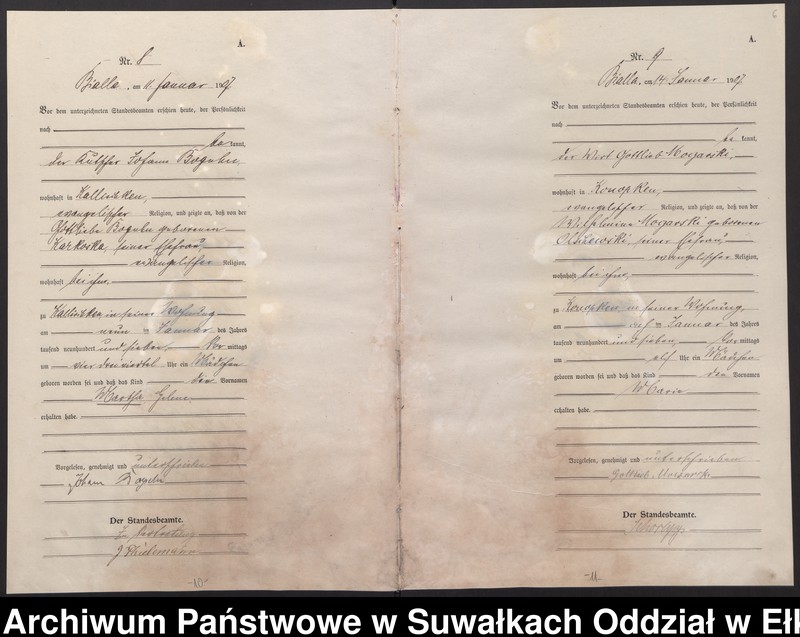 A.
Nr. 8
Bialla, am 11. Januar 1907.
Vor dem unterzeichneten Standesbeamten erschien heute, der Persönlichkeit
nach
be kannt,
der Kutscher Johann
wohnhaft in Kallischken,
evangelischer Religion, und zeigte an, daß von der
Gottliebe geborenen
Karkoska, seiner Ehefrau,
evangelischer Religion,
wohnhaft bei ihm,
zu Kallischken in seiner Wohnung
am neun ten Januar des Jahres
tausend neunhundert und sieben Vor mittags
um vier dreiviertel Uhr ein Mädchen
geboren worden sei und daß das Kind die Vornamen
Martha Helene
erhalten habe.
Vorgelesen, genehmigt und unterschrieben
Johann
Der Standesbeamte.
J. Thiedemann
-10-
6
A.
Nr. 9
Bialla, am 14. Januar 1907.
Vor dem unterzeichneten Standesbeamten erschien heute, der Persönlichkeit
nach
be kannt,
der Wirt Gottlieb
wohnhaft in Konopken,
evangelischer Religion, und zeigte an, daß von der
Wilhelmine geborenen
seiner Ehefrau,
evangelischer Religion,
wohnhaft bei ihm,
zu Konopken, in seiner Wohnung,
am ten Januar des Jahres
tausend neunhundert und sieben, mittags
um elf Uhr ein Mädchen
geboren worden sei und daß das Kind den Vornamen
Marie
erhalten habe.
Vorgelesen, genehmigt und unterschrieben
Gottlieb
Der Standesbeamte.
-11-
Archiwum Państwowe w Suwałkach Oddział w Eł